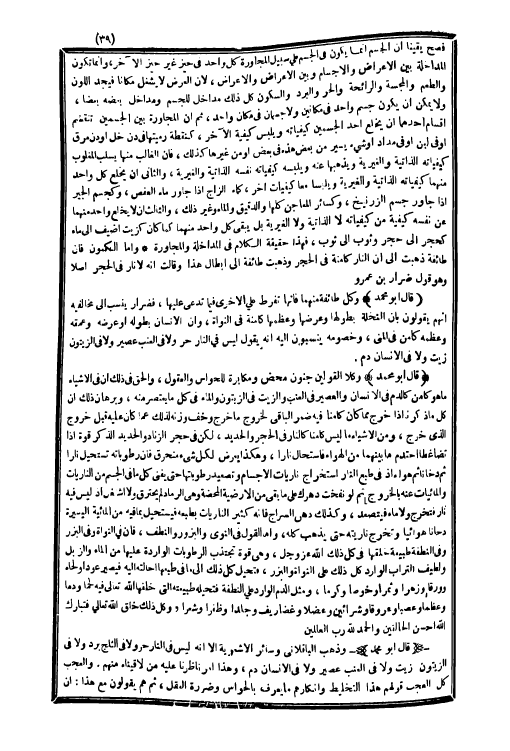 (٣٩)
فصح يقينا أن الجسم انما يكون في الجسم على سبيل المجاورة كل واحد في حيز غير حيز الآخر، وانما تكون
المداخلة بين الاعراض والاجسام وبين الاعراض والاعراض ، لان العرض لا يشغل مكانا فيجد اللون
والطعم والمجسة والرائحة والحر والبرد والسكون كل ذلك مداخل للجسم ومداخل بعضه بعضا ،
ولا يمكن ان يكون جسم واحد في مكانين ولا جسمان في مكان واحد ، ثم ان المجاورة بين الجسمين تنقسم
اقسام احدهما ان يخلع احد الجسمين كيفياته ويلبس كيفية الآخر ، كنقطة رميتها في دن خل او دن مرق
او في لبن او في مداد او شيء يسير من بعض هذه في بعض او من غيرها كذلك ، فان الغالب منها يسلب المغلوب
كيفياته الذاتية والغيرية ويذهبها عنه ويلبسه كيفيات نفسه الذاتية والغيرية ، والثانى ان يخلع كل واحد
منهما كيفياته الذاتية والغيرية ويلبسا معا كيفيات اخر ، كماء الزاج اذا جاور ماء العفص ، وكجسم الجير
اذا جاور جسم الزرنيخ ، وكسائر المعاجن كلها والدقيق والماء وغير ذلك ، والثالث ان لا يخلع واحد منهما
عن نفسه كيفية من كيفياته لا الذاتية ولا الغيرية بل يبقى كل واحد منهما كما كان كزيت اضيف الى ماء
كحجر الى حجر وثوب الى ثوب ، فهذا حقيقة الكلام في المداخلة والمجاورة * واما الكمون فان
طائفة ذهبت الى ان النار كامنة في الحجر وذهبت طائفة الى ابطال هذا وقالت انه لا نار في الحجر اصلا
وهو قول ضرار بن عمرو
﴿ قال ابو محمد ﴾ وكل طائفة منهما فانها تفرط على الاخرى فيما تدعى عليها ، فضرار ينسب الى مخالفيه
انهم يقولون بان النخلة بطولها وعرضها وعظمها كامنة في النواة ، وان الانسان بطوله وعرضه وعمقه
وعظمه كامن في المنى ، وخصومه ينسبون اليه انه يقول ليس في النار حر ولا في العنب عصير ولا في الزيتون
زيت ولا في الانسان دم .
﴿ قال ابو محمد ﴾ وكلا القولين جنون محض ومكابرة للحواس والعقول ، والحق في ذلك ان في الاشياء
ما هو كامن كالدم في الانسان والعصير في العنب والزيت في الزيتون والماء في كل ما يعتصر منه ، وبرهان ذلك ان
كل ما ذكرنا اذا خرج مما كان كامنا فيه ضمر الباقى لخروج ما خرج وخف وزنه لذلك عما كان عليه قبل خروج
الذي خرج ، ومن الاشياء ما ليس كامنا كالنار في الحجر والحديد ، لكن في حجر الزناد والحديد الذكر قوة اذا
تضاغطا احتدم ما بينهما من الهواء فاستحال نارا ، وهكذا يعرض لكل شيء منحرق فان رطوباته تستحيل نارا
ثم دخانا ثم هواء اذ في طبع النار استخراج ناريات الاجسام وتصعيد رطوباتها حتى يفنى كل ما في الجسم من الناريات
والمائيات عنه بالخروج ثم لو نفخت دهرك على ما بقى من الارضية المحضة وهى الرماد لم يحترق ولا اشتعل اذ ليس فيه
نار فتخرج ولا ماء فيتصعد ، وكذلك دهن السراج فانه كثير الناريات بطبعه فيستحيل ما فيه من المائية اليسيرة
دخانا هوائيا وتخرج ناريته حتى يذهب كله ، واما القول في النوى والبزور والنطف ، فان في النواة وفى البزر
وفى النطفة طبيعة خلقها في كل ذلك الله عز وجل ، وهى قوة تجتذب الرطوبات الواردة عليها من الماء والزبل
ولطيف التراب الوارد كل ذلك على النواة والبزر ، فتحيل كل ذلك الى ما في طبعها احالته اليه فيصير عودا ولحاء
وورقا وزهرا وثمرا وخوصا وكرما ، ومثل الدم الوارد على النطفة فتحيله طبيعته التى خلقها الله تعالى فيه لحما ودما
وعظما وعصبا وعروقا وشرائين وعضلا وغضاريف وجلدا وظفرا وشعرا ، وكل ذلك خلق الله تعالى فتبارك
الله احسن الخالقين والحمد لله رب العالمين
﴿ قال ابو محمد ﴾ وذهب الباقلانى وسائر الاشعرية الا انه ليس في النار حر ولا في الثلج برد ولا في
الزيتون زيت ولا في العنب عصير ولا في الانسان دم ، وهذا امر ناظرنا عليه من لاقيناه منهم ، والعجب
كل العجب قولهم هذا التخليط وانكارهم ما يعرف بالحواس وضرورة العقل ، ثم هم يقولون مع هذا : ان